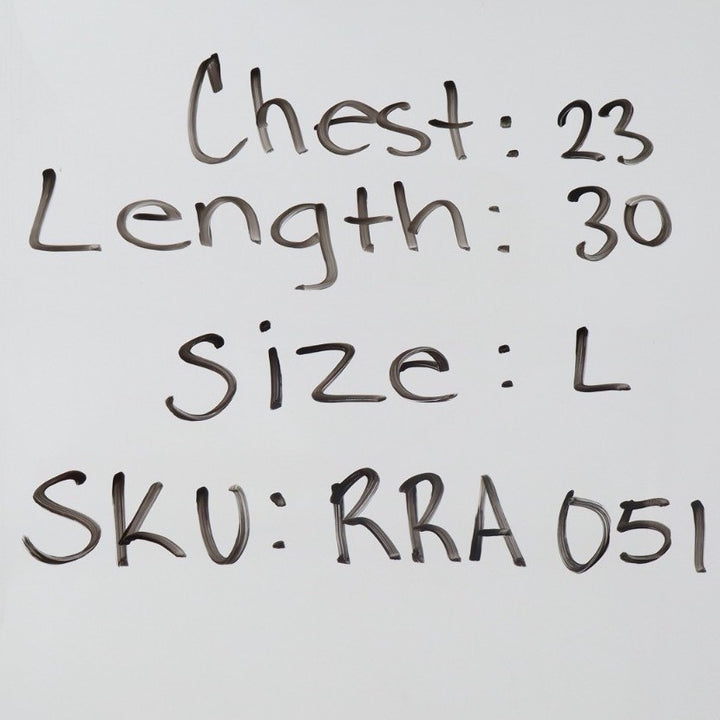 Chest: 23
Length: 30
Size: L
SKU: RRA 051